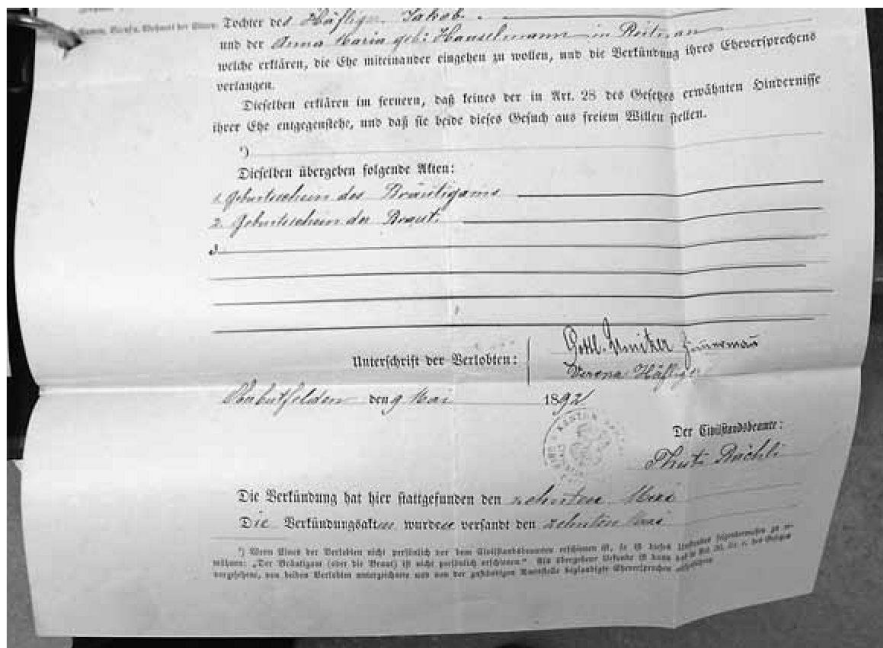 Tochter des Häfliger Jakob.
und der Anna Maria geb: Hauselmann in Reitnau
welche erklären, die Ehe miteinander eingehen zu wollen, und die Verkündung ihres Eheversprechens
verlangen.
Dieselben erklären im fernern, daß keines der in Art. 28 des Gesetzes erwähnten Hindernisse
ihrer Ehe entgegenstehe, und daß sie beide dieses Gesuch aus freiem Willen stellen.
¹)
Dieselben übergeben folgende Akten:
1. Geburtsschein des Bräutigams
2. Geburtsschein der Braut.
3.
Unterschrift der Verlobten:
Gottl.
Verena Häfliger
den 9 Mai 1892
Der Civilstandsbeamte:
Bächli
Die Verkündung hat hier stattgefunden den zehnten Mai
Die Verkündungsakten wurden versandt den zehnten Mai
¹) Wenn Eines der Verlobten nicht persönlich vor dem Civilstandsbeamten erschienen ist, so ist dieses Umstandes folgendermaßen zu er-
wähnen: „Der Bräutigam (oder die Braut) ist nicht persönlich erschienen." Als übergebene Urkunde ist dann das in Art. 30, des Gesetzes
vorgesehene, von beiden Verlobten unterzeichnete und von der zuständigen Amtsstelle beglaubigte Eheversprechen aufzuführen.